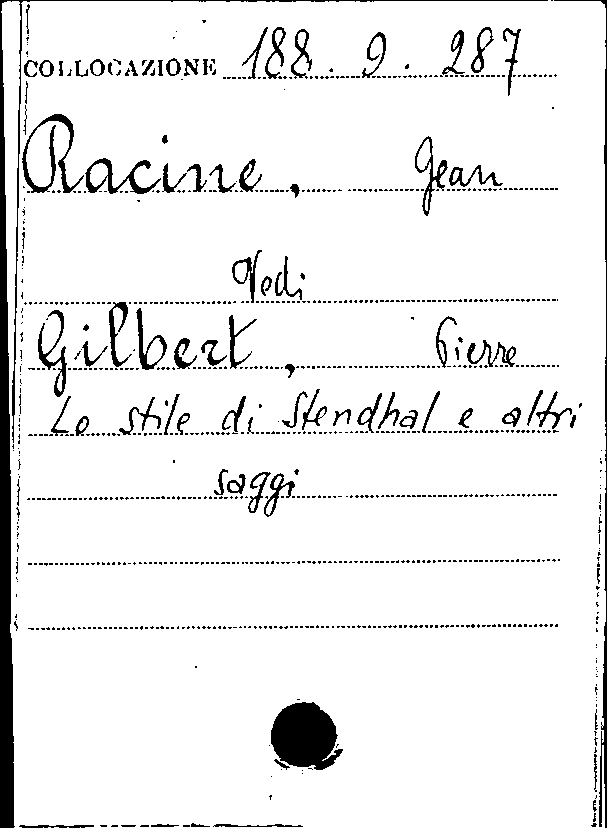 COLLOCAZIONE 188. 9. 287
Racine, Jean
Vedi
Gilbert, Pierre
Lo stile di Stendhal e altri
saggi